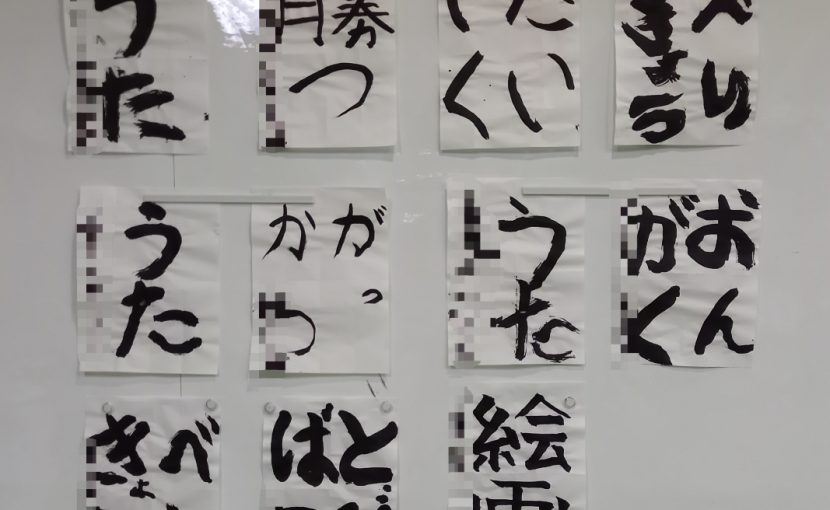 うた
勝つ
たい
いく
べん
きょう
うた
がっ
かつ
うた
おん
がく
べ
きょ
と
ば
絵画